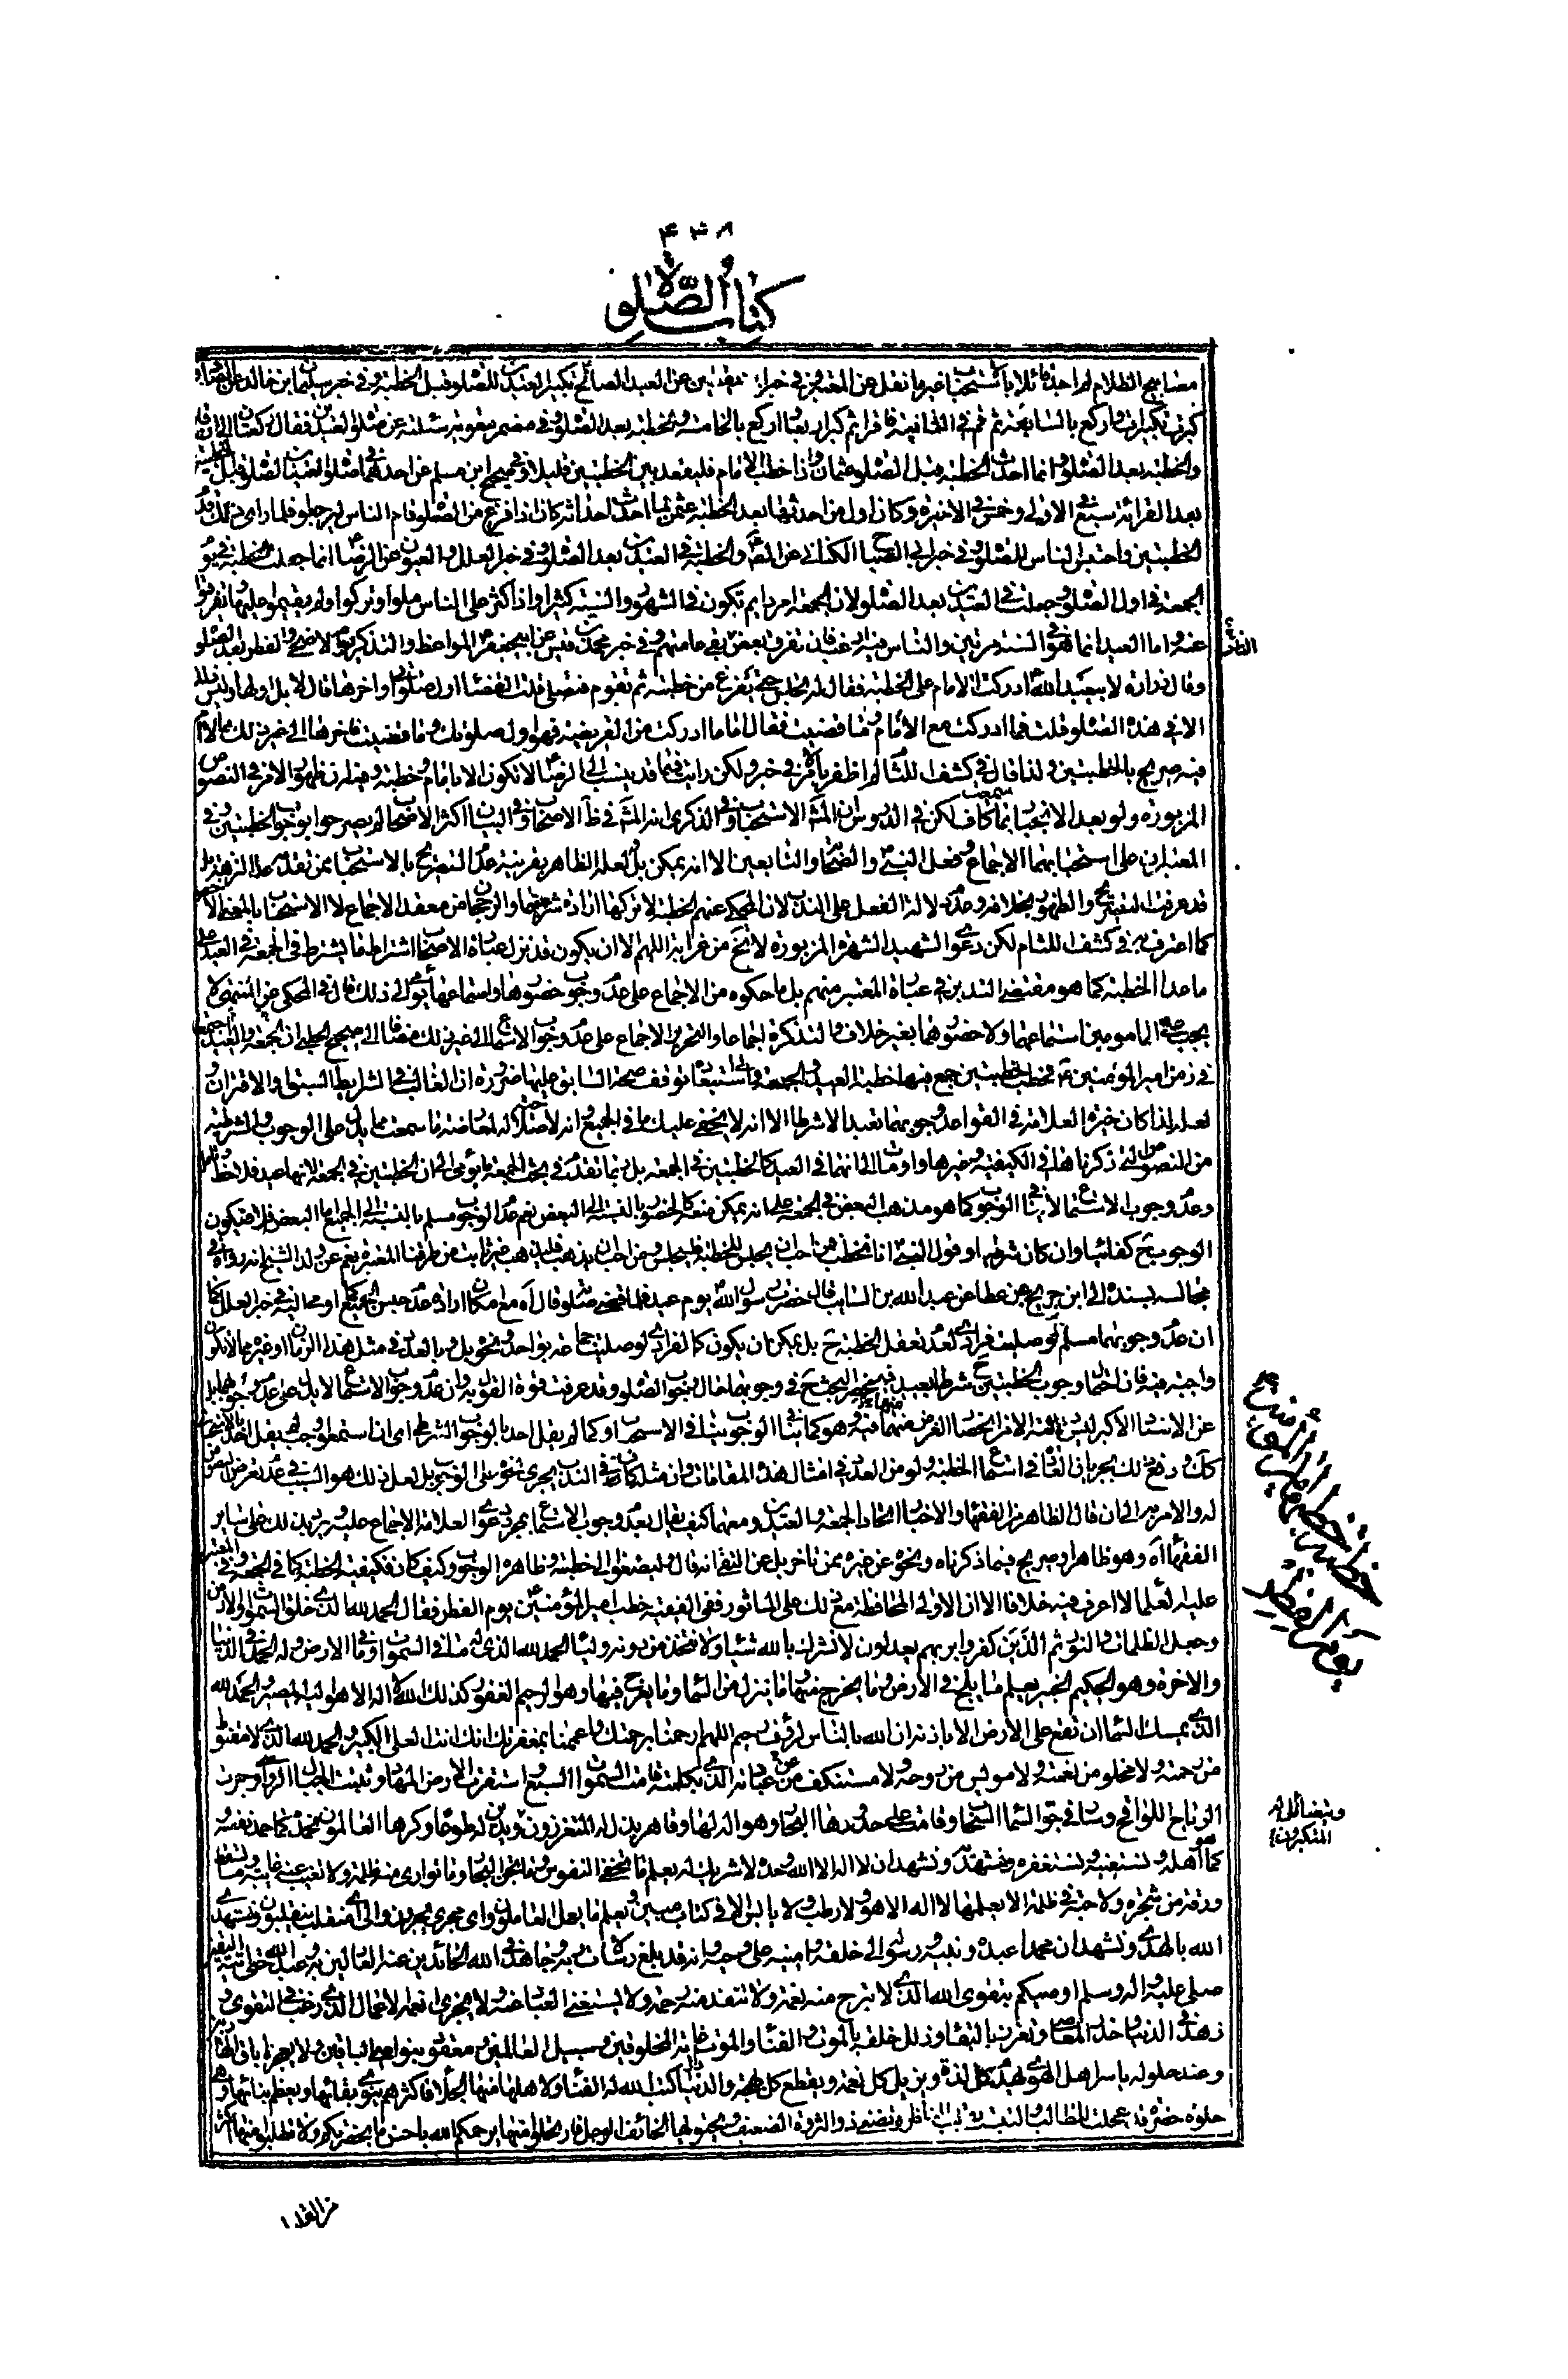 ۴۳۸
كتاب الصلوة
مصابيح الظلام لم اجد قائلا باستحبابا غير ما نقل عن المعتبر وفي خبر العبد الصالح تكبير العيدين للصلوة قبل الخطبة وفي خبر سليمان بن خالد
كبرت تكبيرات واركع بالسابعة ثم قم في الثانية فاقرا ثم كبر اربعا واركع بالخامسة والخطبة بعد الصلوة وفي مضمر معوية سئلته عن صلوة العيدين فقال ركعتان الى ان قال
والخطبة بعد الصلوة وانما احدث الخطبة قبل الصلوة عثمان واذا خطب الامام فليقعد بين الخطبتين قليلا وفي صحيح ابن مسلم عن احدهما في صلوة العيدين الصلوة قبل الخطبتين
بعد القرائة سبع في الاولى وخمس في الاخيرة وكان اول من احدثها بعد الخطبة عثمن لما احدث احداثه كان اذا فرغ من الصلوة قام الناس ليرجعوا فلما راى ذلك قدم
الخطبتين واحتبس الناس للصلوة وفي خبر ابي الصباح الكناني عن الصم والخطبة في العيدين بعد الصلوة وفي خبر العلل والعيون عن الرضا انما جعلت الخطبة في يوم
الجمعة في اول الصلوة وجعلت في العيدين بعد الصلوة لان الجمعة امر دايم تكون في الشهور والسنة كثيرا واذا كثر على الناس ملوا وتركوا ولم يقيموا عليها وتفرقوا
عنه واما العيد انما هو في السنة مرتين والناس فيه ارغب فان تفرق بعض بقي عامتهم وفي خبر محمد بن قيس عن ابي جعفر المواعظ والتذكرة يوم الاضحى والفطر بعد الصلوة
وقال زرارة لابي عبد الله ادركت الامام على الخطبة فقال له تجلس حتى يفرغ من خطبته ثم تقوم فتصلي قلت القضا اول صلوتي او اخرها قال لا بل اولها وليس ذلك
الا في هذه الصلوة قلت فما ادركت مع الامام وما قضيت فقال اما ما ادركت من الفريضة فهو اول صلوتك وما قضيت فاخرها الى غير ذلك مما لا امر
فيه صريح بالخطبتين ولذا قال في كشف اللثام لم اظفر بامر في خبر ولكن رايت فيما قد ينسب الى الرضا لا تكون الا بامام وخطبة وفيه ان ظهور الامر في النصوص
المزبورة ولو بعد الانجبار بما سمعت كاف لكن في الدروس ان المشهور الاستحباب وفي الذكرى انه المشهور في ظاهر الاصحاب وفي البيان اكثر الاصحاب لم يصرحوا بوجوب الخطبتين وفي
المعتبر ان على استحبابهما الاجماع وفعل النبي والصحابة والتابعين الا انه يمكن بل لعله الظاهر بقرينة عدم التصريح بالاستحباب ممن تقدم عدا النزهة بل
قد عرفت التصريح والظهور بخلافه وعدم دلالة الفعل على الندب لان المحكي عنهم الخطبة لا تركها ارادة شرعيتهما والرجحان من معقد الاجماع لا الاستحباب بالمعنى الاخص
كما اعترف به في كشف اللثام لكن دعوى الشهيد الشهرة المزبورة لا تخ من غرابة اللهم الا ان يكون قد نزل عبارة الاصحاب اشتراط ما يشترط في الجمعة في العيد على
ما عدا الخطبة كما هو مقتضى التدبر في عبارة المعتبر منهم بل ما حكوه من الاجماع على عدم وجوب حضورها واستماعها يؤمي الى ذلك قال في المحكي عن المنتهى لا
يجب على المامومين استماعهما ولا حضورهما بغير خلاف والتذكرة اجماعا والتحرير الاجماع على عدم وجوب الاستماع الى غير ذلك مضافا الى صحيح الحلبي ان الجمعة والعيد اجتمعا
في زمن امير المؤمنين ع فخطب خطبتين جمع فيها خطبة العيد والجمعة والى استبعاد توقف صحة السابق عليها ضرورة ان الغالب في الشرايط السبق او الاقتران و
لعله لذا كان خيرة العلامة في القواعد وجوبهما تعبدا لا شرطا الا انه لا يخفى عليك ما في الجميع وانه لا صلاحية له لمعارضة ما سمعت مما يدل على الوجوب والشرطية
من النصوص التي ذكرناها في الكيفية وغيرها واومات الى انهما في العيد كالخطبتين في الجمعة بل ربما تقدم في بحث الجمعة ما يؤمي الى ان الخطبتين في الجمعة لانها عيد فلاحظ وتامل
وعدم وجوب الاستماع لا ينافي الوجوب كما هو مذهب البعض في الجمعة على انه يمكن منعه كالحضور بالنسبة الى البعض نعم عدم الوجوب مسلم بالنسبة الى الجميع اما البعض فلا فيكون
الوجوب ح كفائيا وان كان شرطيا وقول النبي انا نخطب فمن احب ان يجلس للخطبة فليجلس ومن احب ان يذهب فليذهب غير ثابت من طرقنا المعتبرة نعم عن ولد الشيخ انه رواه في
مجالسه بسنده الى ابن جريح عن عطا عن عبد الله بن السايب قال حضرت رسول الله يوم عيد فلما قضى صلوته قال آه مع امكان ارادة عدم حبس الجميع كما اومى اليه في خبر العلل كما
ان عدم وجوبهما مسلم لو صليت فرادى لعدم تعقل الخطبة ح بل يمكن ان يكون كالفرادى لو صليت جماعة بواحد ونحوه بل وبالعدد في مثل هذا الزمان وغيره مما لا تكون
واجبة فيه فان احتمال وجوب الخطبتين ح شرطا بعيد فينحصر البحث ح في وجوبهما حال وجوب الصلوة وقد عرفت قوة القول به وان عدم وجوب الاستماع لا يدل على عدم وجوبهما بل
عن الاستاد الاكبر ليس ثمرة الامر انحصار الغرض منهما فيه وهو كما ينافي الوجوب ينافي الاستحباب او كما لم يقل احد بالوجوب الشرطي اي ان استمعوا وجب لم يقل احد بالاستحباب
كك ودفع ذلك بجريان العادة في استماع الخطبة ولو من العدد في امثال هذه المقامات وان مثله كاف في الندب يجري نحوه في الوجوب بل لعل ذلك هو السبب في عدم تعرض النصوص
له والامر به الى ان قال الظاهر من الفقهاء والاخبار اتحاد الجمعة والعيدين ومعهما كيف يقال بعدم وجوب الاستماع بمجرد دعوى العلامة الاجماع عليه ويزيد ذلك خفى ساير
الفقهاء آه وهو ظاهر او صريح فيما ذكرناه ونحوه عن غيره ممن تاخر بل عن التقي انه قال وليصغوا الى خطبته وظاهره الوجوب وكيف كان فكيفية الخطبة كما في الجمعة وفي المعتبر
عليه العلماء لا اعرف فيه خلافا الا ان الاولى المحافظة مع ذلك على الماثور ففي الفقيه خطب امير المؤمنين ع يوم الفطر فقال الحمد لله الذي خلق السموات والارض
وجعل الظلمات والنور ثم الذين كفروا بربهم يعدلون لا نشرك بالله شيئا ولا نتخذ من دونه وليا الحمد لله الذي له ما في السموات وما في الارض وله الحمد في الدنيا
والاخرة وهو الحكيم الخبير يعلم ما يلج في الارض وما يخرج منها وما ينزل من السما وما يعرج فيها وهو الرحيم الغفور كذلك الله لا اله الا هو اليه المصير والحمد لله
الذي يمسك السما ان تقع على الارض الا باذنه ان الله بالناس لرؤف رحيم اللهم ارحمنا برحمتك واعممنا بمغفرتك انك انت العلي الكبير والحمد لله الذي لا مقنوط
من رحمته ولا مخلو من نعمته ولا مويس من روحه ولا مستنكف عن عبادته الذي بكلمته قامت السموات السبع واستقرت الارض المهاد وثبتت الجبال الرواسي وجرت
الرياح اللواقح وسار في جو السما السحاب وقامت على حدودها البحار وهو اله لها وقاهر يذل له المتعززون ويدين له طوعا وكرها العالمون نحمده كما حمد نفسه و
كما هو اهله ونستعينه ونستغفره ونستهديه ونشهد ان لا اله الا الله وحده لا شريك له يعلم ما تخفي النفوس وما تجن البحار وما توارى منه ظلمة ولا تغيب عنه غايبة وما تسقط
ورقة من شجرة ولا حبة في ظلمة الا يعلمها لا اله الا هو ولا رطب ولا يابس الا في كتاب مبين ويعلم ما يعمل العاملون واي مجرى يجرون والى اي منقلب ينقلبون ونستهدي
الله بالهدى ونشهد ان محمدا عبده ونبيه ورسوله الى خلقه وامينه على وحيه وانه قد بلغ رسالات ربه وجاهد في الله الحائدين عنه العادلين به وعبد الله حتى اتيه اليقين
صلى عليه واله وسلم اوصيكم بتقوى الله الذي لا تبرح منه نعمة ولا تنفد منه رحمة ولا يستغني العباد عنه ولا يجزي انعمه الاعمال الذي رغب في التقوى و
زهد في الدنيا وحذر المعاصي وتعزز بالبقاء وذلل خلقه بالموت والفناء والموت غاية المخلوقين وسبيل العالمين ومعقود بنواصي الباقين ولا يعجزه اباق الهاربين
وعند حلوله ياسر اهل الهوى يهدم كل لذة ويزيل كل نعمة ويقطع كل بهجة والدنيا دار كتب الله لها الفناء ولاهلها منها الجلاء فاكثرهم ينوي بقائها ويعظم بنائها وهي
حلوة خضرة قد عجلت للطالب والتبست بقلب الناظر وتضني ذو الثروة الضعيف ويجتويها الخائف الوجل فارتحلوا منها يرحمكم الله باحسن ما بحضرتكم ولا تطلبوا منها اكثر
من القليل
خطبة امير المؤمنين
يوم الفطر